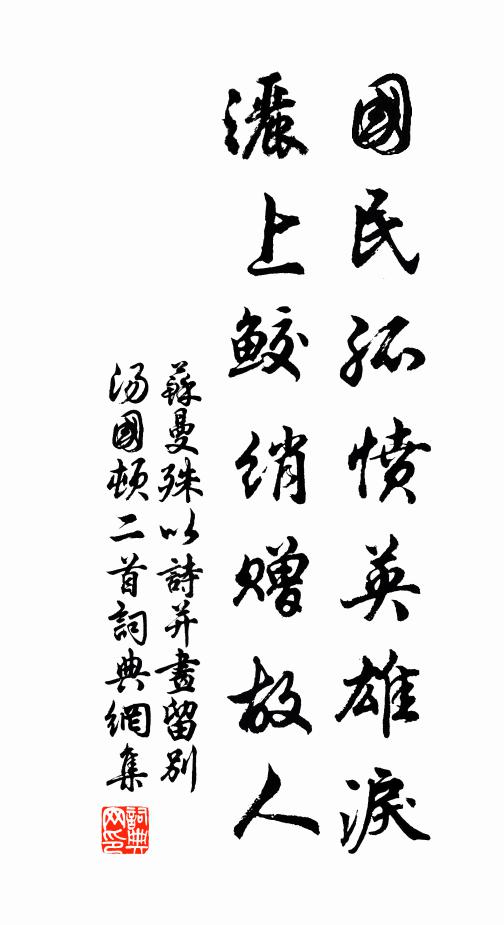 國民孤憤英雄淚
灑上鮫綃贈故人
蘇曼殊以詩并畫留別
湯國頓二首詞典網集
詞典
网印